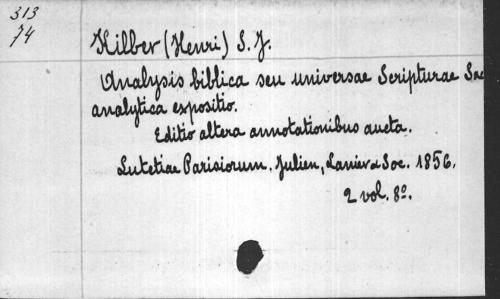 313
74
Kilber (Henri) S. J.
Analysis biblica seu universae Scripturae Sac
analytica expositio.
Editio altera annotationibus aucta.
Lutetiae Parisiorum. Julien, Lanier & Soc. 1856.
2 vol. 8º.